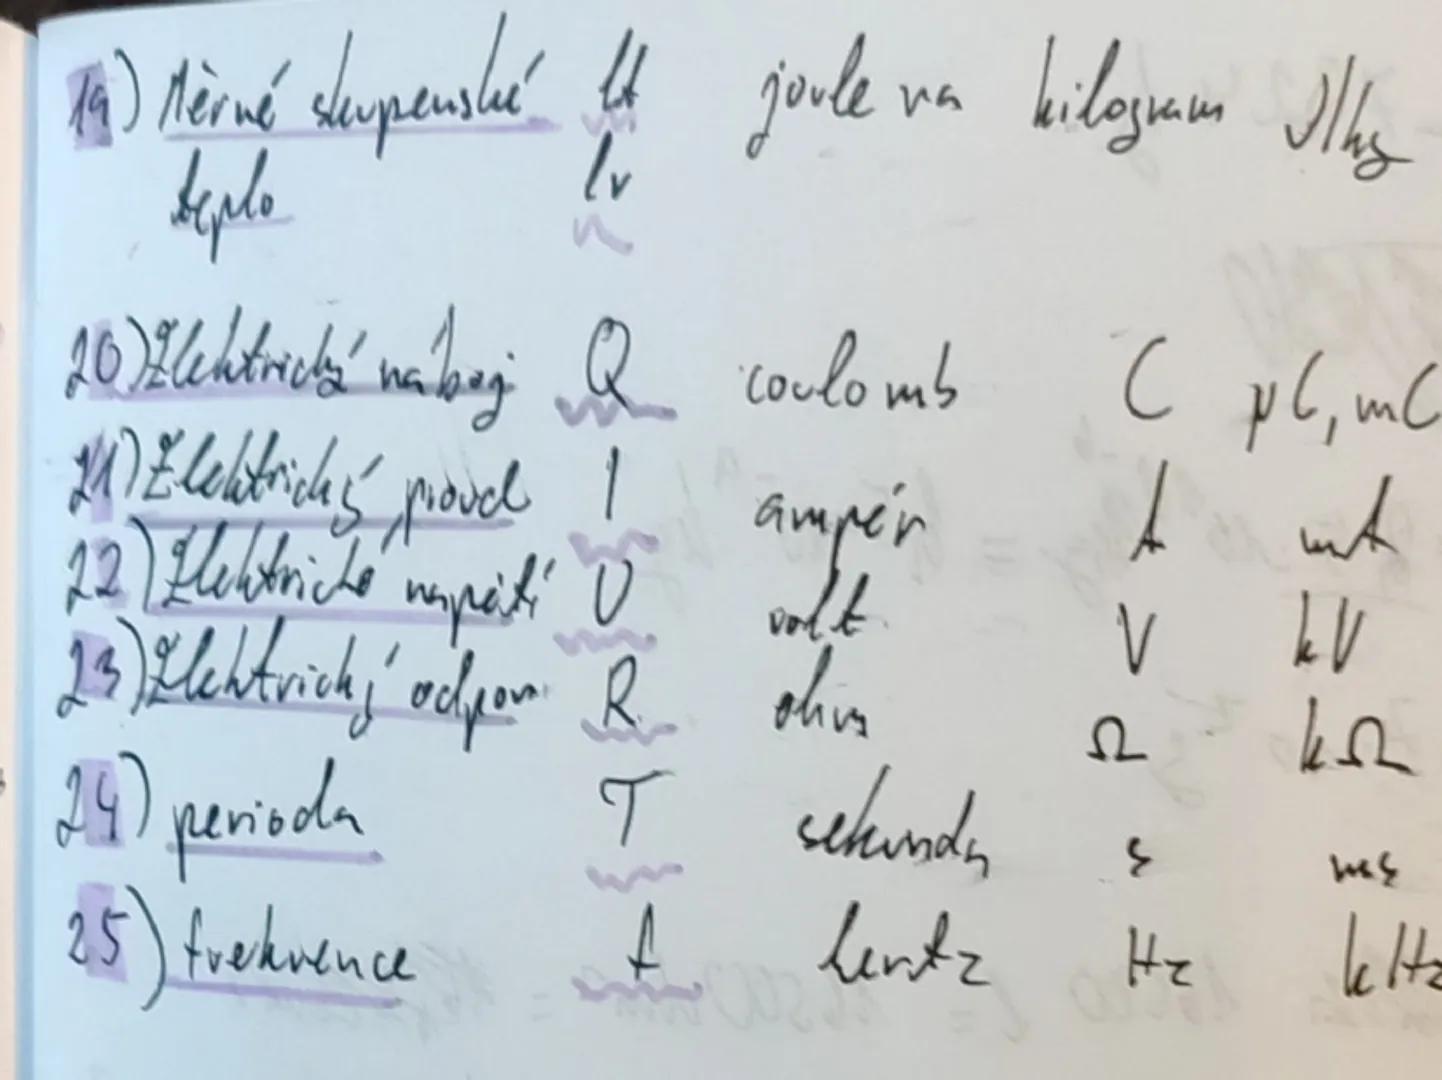 19) Měrné skupenské lt joule na kilogram J/kg
teplo lv
20) Elektrický náboj Q coulomb C μC, mC
21) Elektrický proud I ampér A mA
22) Elektrické napětí U volt V kV
23) Elektrický odpor R ohm Ω kΩ
24) perioda T sekunda s ms
25) frekvence f hertz Hz kHz